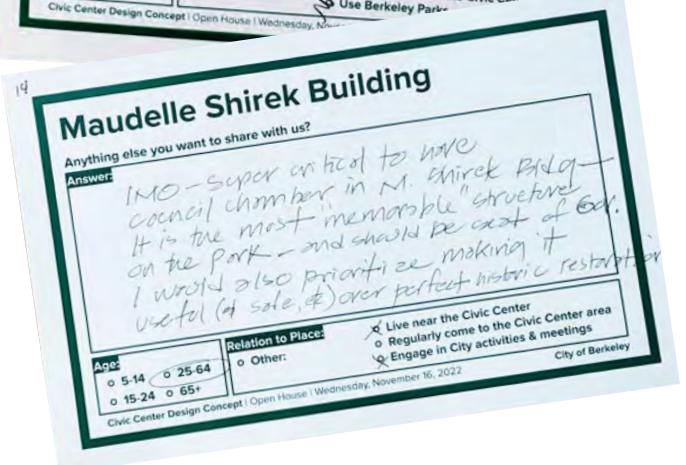 Civic Center Design Concept | Open House | Wednesday,
Use Berkeley Park
14
Maudelle Shirek Building
Anything else you want to share with us?
Answer:
IMO - Super critical to have
council chamber in M. Shirek Bldg -
It is the most "memorable" structure
on the Park - and should be seat of Gov.
I would also prioritize making it
useful (& safe, &) over perfect historic restoration
Age:
o 5-14 o 25-64
o 15-24 o 65+
Relation to Place:
o Other:
o Live near the Civic Center
o Regularly come to the Civic Center area
o Engage in City activities & meetings
Civic Center Design Concept | Open House | Wednesday, November 16, 2022
City of Berkeley